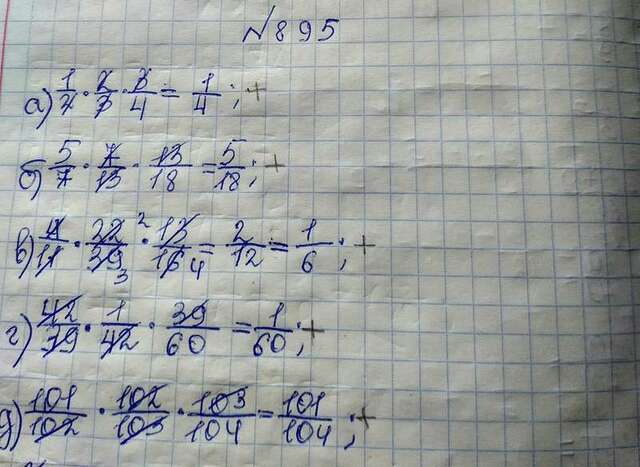 №895
а) 1/2 · 2/3 · 3/4 = 1/4; +
б) 5/7 · 7/13 · 13/18 = 5/18; +
в) 4/11 · 22/39 2/3 · 13/16 4 = 2/12 = 1/6; +
г) 42/39 · 1/42 · 39/60 = 1/60; +
д) 101/102 · 102/103 · 103/104 = 101/104; +